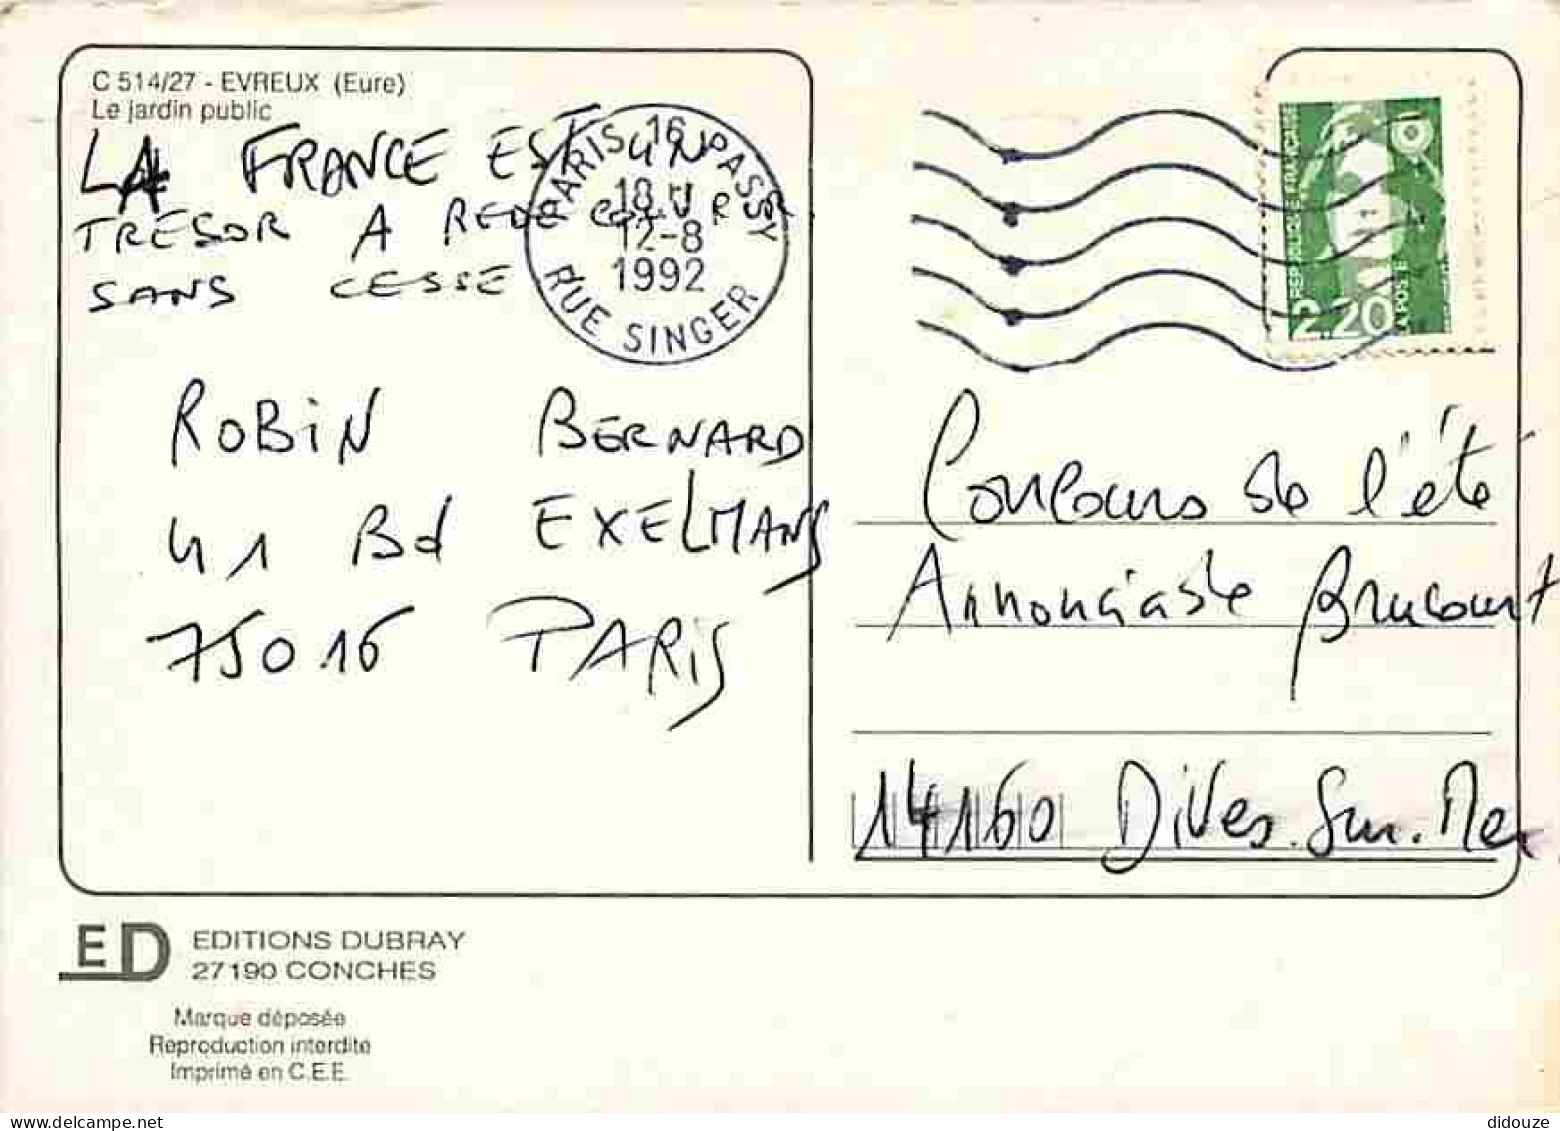 C 514/27 - EVREUX (Eure)
Le jardin public
LA FRANCE EST UN
TRESOR A REDECOUVRIR
SANS CESSE
ROBIN BERNARD
41 Bd EXELMANS
75016 PARIS
PARIS 16 PASSY
18 H
12-8
1992
RUE SINGER
REPUBLIQUE FRANCAISE
LA POSTE
2,20
Concours de l'été
Annonciade Brucourt
14160 Dives.Sur.Mer
ED
EDITIONS DUBRAY
27190 CONCHES
Marque déposée
Reproduction interdite
Imprimé en C.E.E.
didouze